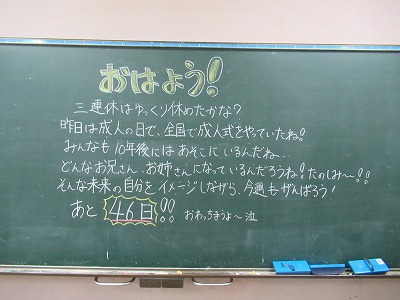 おはよう!
三連休はゆっくり休めたかな?
昨日は成人の日で、全国で成人式をやっていたね!
みんなも10年後にはあそこにいるんだね...
どんなお兄さん、お姉さんになっているんだろうね!たのしみ〜!!
そんな未来の自分をイメージしながら、今週もがんばろう!
あと 46日!! おわっちまうよ〜泣